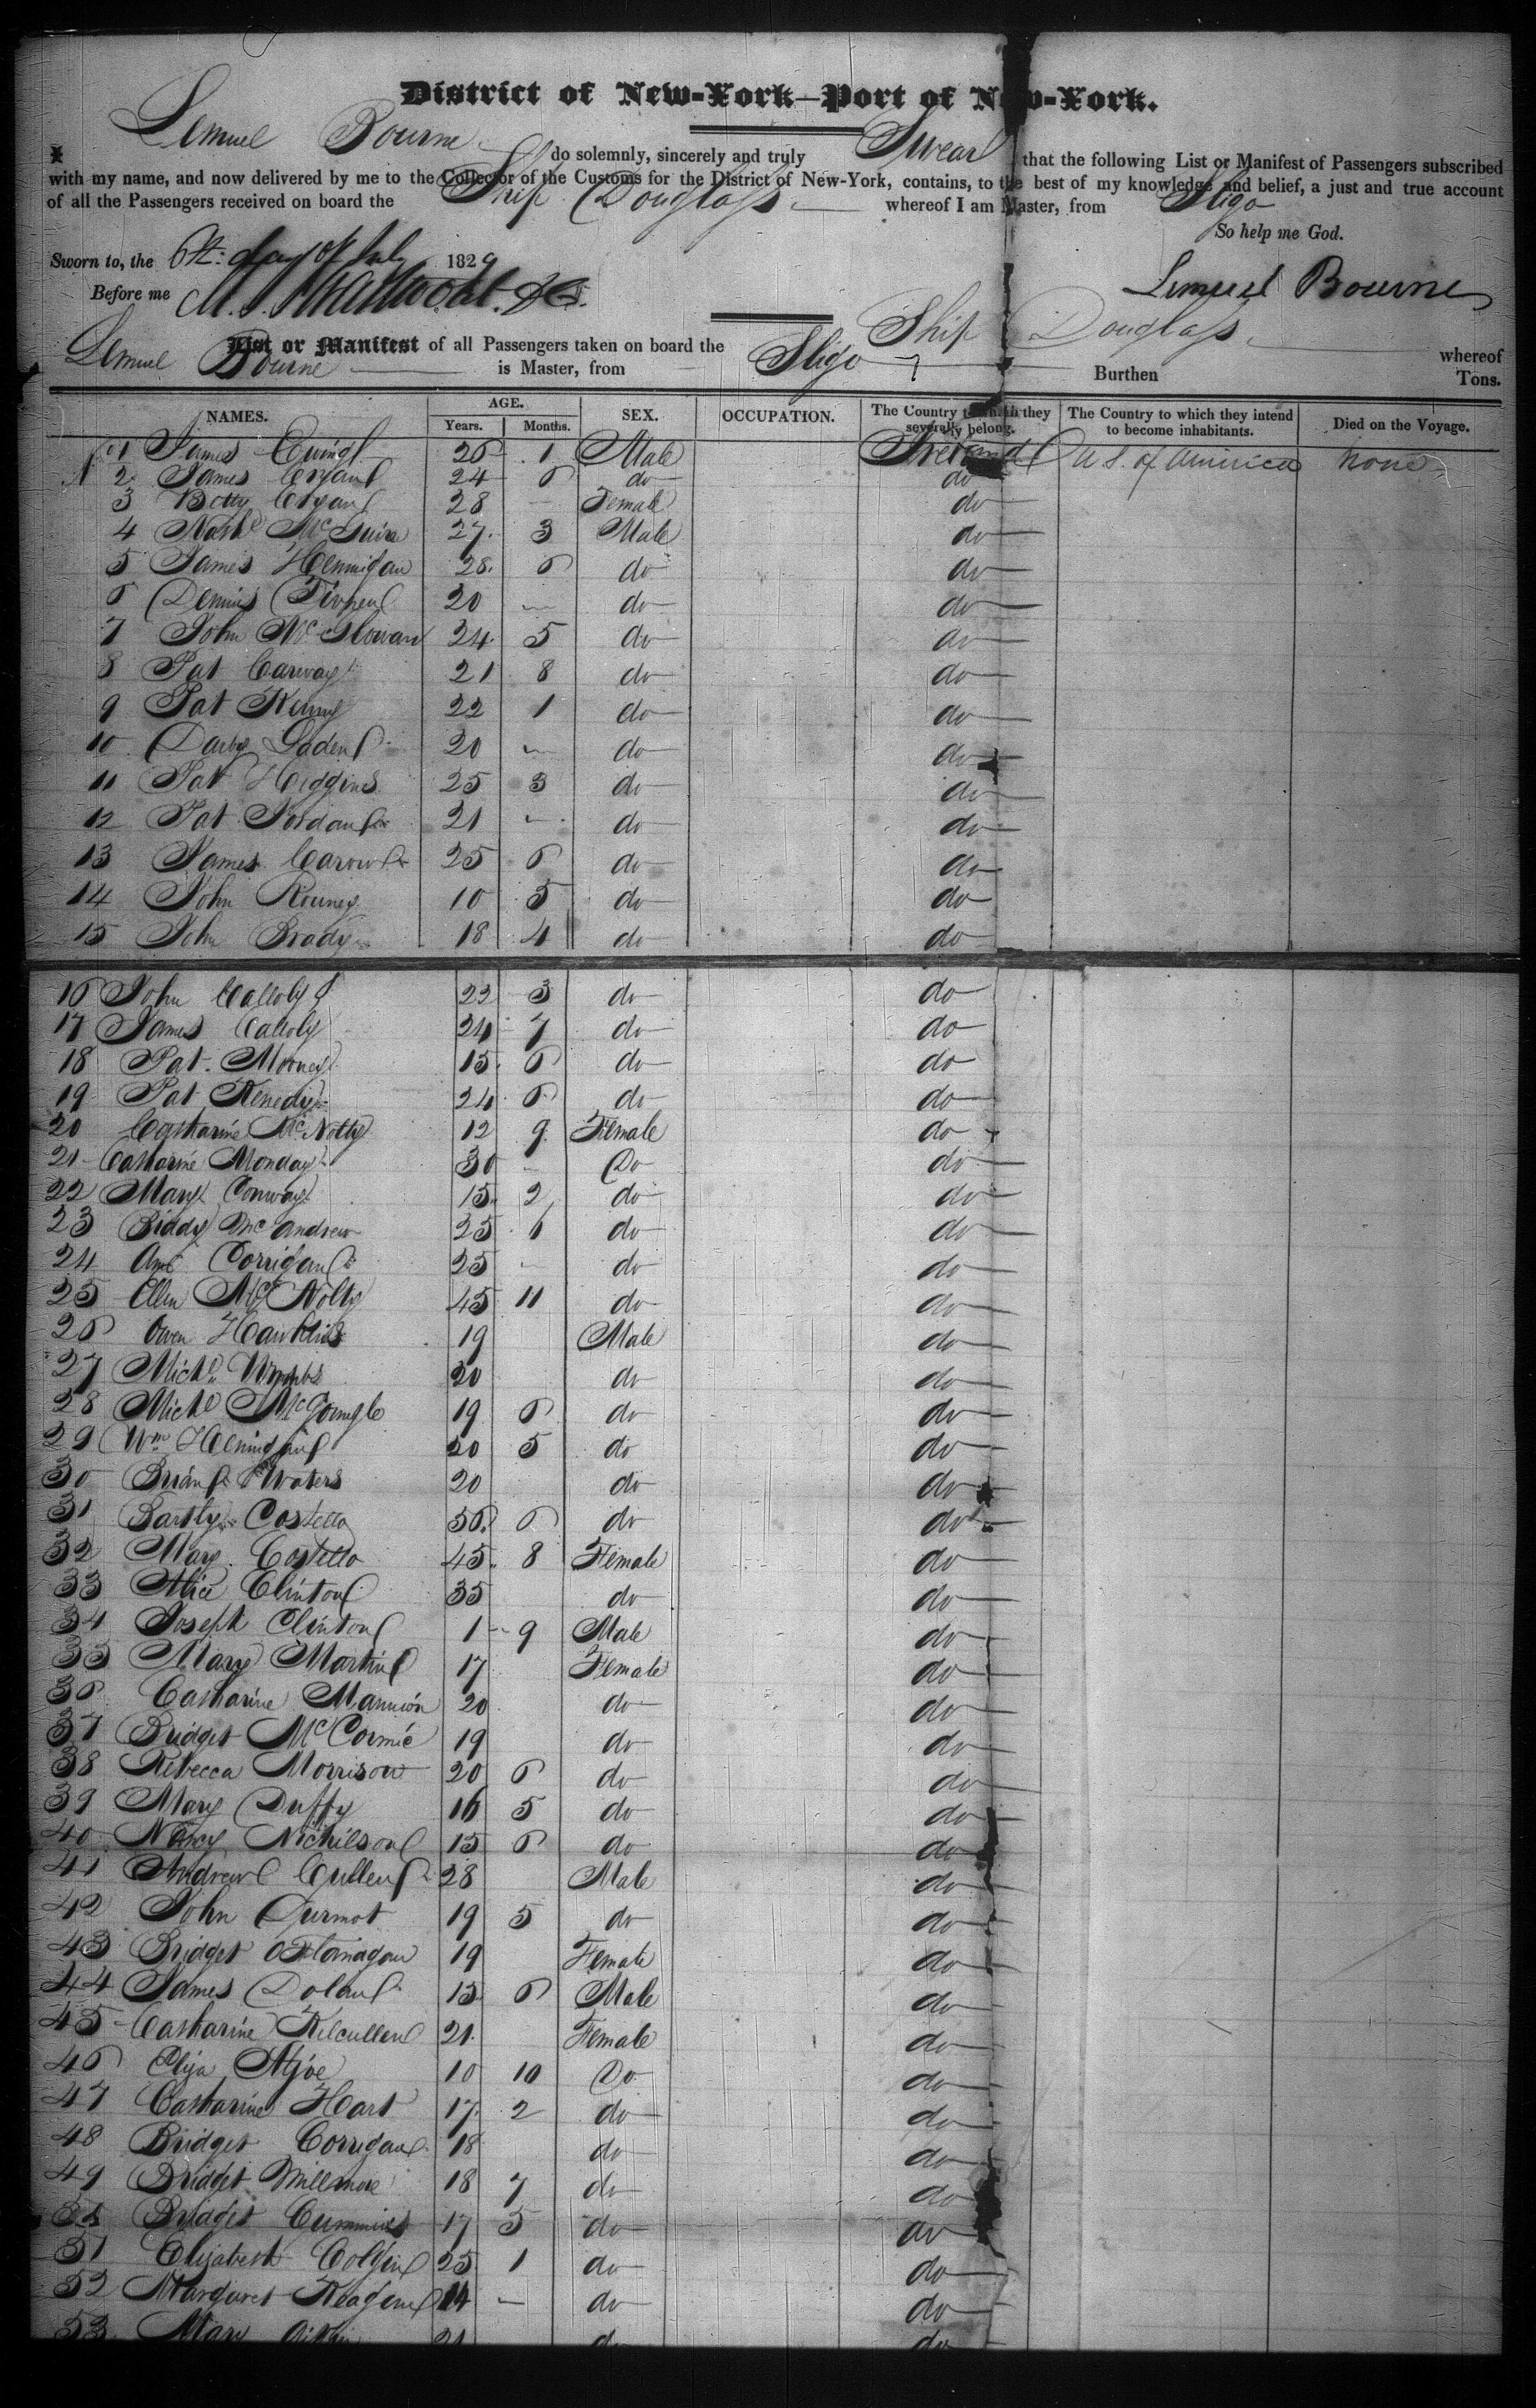 District of New-York—Port of New-York.
Lemuel Bourne do solemnly, sincerely and truly Swear that the following List or Manifest of Passengers subscribed
with my name, and now delivered by me to the Collector of the Customs for the District of New-York, contains, to the best of my knowledge and belief, a just and true account
of all the Passengers received on board the Ship Douglass whereof I am Master, from Sligo
So help me God.
Sworn to, the 6th day of July 1829
Before me
Lemuel Bourne
List or Manifest of all Passengers taken on board the Ship Douglass whereof
Lemuel Bourne is Master, from Sligo Burthen Tons.
NAMES. AGE. Years. Months. SEX. OCCUPATION. The Country to which they severally belong. The Country to which they intend to become inhabitants. Died on the Voyage.
1 James 26 1 Male Ireland U S. of America None
2 James 24 6 do do
3 Betty 28 — Female do
4 27 3 Male do
5 James Hennigan 28 6 do do
6 Dennis 20 — do do
7 John 24 5 do do
8 Pat 21 8 do do
9 Pat Kenny 22 1 do do
10 Darby 20 — do do
11 Pat Higgins 25 3 do do
12 Pat Jordan 21 — do do
13 James 25 6 do do
14 John 10 5 do do
15 John Brady 18 4 do do
16 John 22 3 do do
17 James 24 7 do do
18 Pat Mooney 15 6 do do
19 Pat Kenedy 24 6 do do
20 Catharine McNolty 12 9 Female do
21 Catharine Monday 30 — Do do
22 Mary Conway 15 2 do do
23 Biddy McAndrew 25 6 do do
24 Ann Corrigan 25 — do do
25 Ellen McNolty 45 11 do do
26 Owen 19 Male do
27 Michl 20 do do
28 Michl McGonigle 19 6 do do
29 Wm Hennigan 20 5 do do
30 Brian Waters 20 do do
31 Bartly Costello 56 6 do do
32 Mary Costello 45 8 Female do
33 Alice Clinton 35 do do
34 Joseph Clinton 1 9 Male do
35 Mary Martin 17 Female do
36 Catharine Mannion 20 do do
37 Bridget McCormic 19 do do
38 Rebecca Morrison 20 6 do do
39 Mary Duffy 16 5 do do
40 Nancy Nichilson 15 6 do do
41 Andrew Cullen 28 Male do
42 John Durmot 19 5 do do
43 Bridget OFlanagan 19 Female do
44 James Dolan 15 6 Male do
45 Catharine Kilcullen 21 Female do
46 Eliza 10 10 Do do
47 Catharine Hart 17 2 do do
48 Bridget Corrigan 18 do do
49 Bridget Millmore 18 7 do do
Bridget Cummins 17 5 do do
51 Elizabeth 25 1 do do
52 Margaret Reagen 14 — do do
53 Mary 21 do do